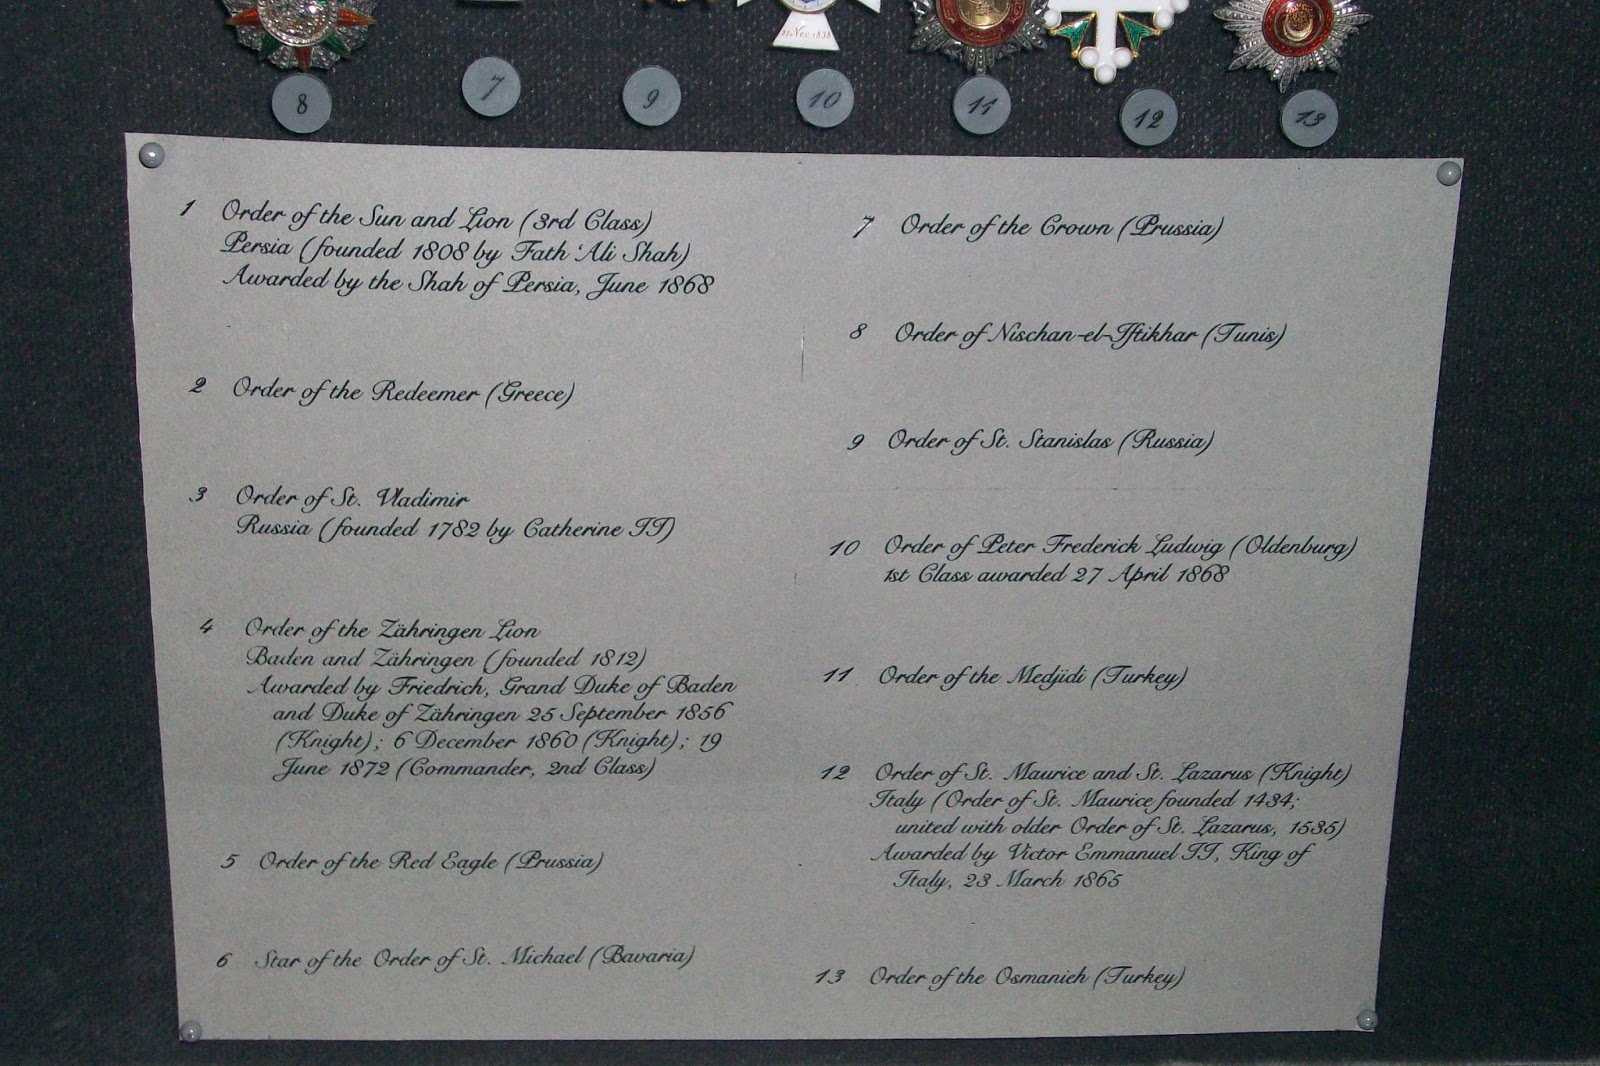 27 Nov. 1838
8
7
9
10
11
12
13
1 Order of the Sun and Lion (3rd Class)
Persia (founded 1808 by Fath ‘Ali Shah)
Awarded by the Shah of Persia, June 1868
2 Order of the Redeemer (Greece)
3 Order of St. Vladimir
Russia (founded 1782 by Catherine II)
4 Order of the Zähringen Lion
Baden and Zähringen (founded 1812)
Awarded by Friedrich, Grand Duke of Baden
and Duke of Zähringen 25 September 1856
(Knight); 6 December 1860 (Knight); 19
June 1872 (Commander, 2nd Class)
5 Order of the Red Eagle (Prussia)
6 Star of the Order of St. Michael (Bavaria)
7 Order of the Crown (Prussia)
8 Order of Nischan-el-Iftikhar (Tunis)
9 Order of St. Stanislas (Russia)
10 Order of Peter Frederick Ludwig (Oldenburg)
1st Class awarded 27 April 1868
11 Order of the Medjidi (Turkey)
12 Order of St. Maurice and St. Lazarus (Knight)
Italy (Order of St. Maurice founded 1434;
united with older Order of St. Lazarus, 1535)
Awarded by Victor Emmanuel II, King of
Italy, 23 March 1865
13 Order of the Osmanieh (Turkey)